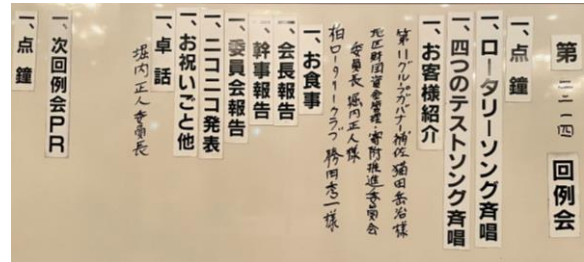 第二二一四回例会
一、点鐘
一、ロータリーソング斉唱
一、四つのテストソング斉唱
一、お客様紹介
第11グループガバナー補佐 猫田岳治様
地区財団資金管理・寄附推進委員会
委員長 堀内正人様
柏ロータリークラブ 勝田秀一様
一、お食事
一、会長報告
一、幹事報告
一、委員会報告
一、ニコニコ発表
一、お祝いごと他
一、卓話
堀内正人委員長
一、次回例会PR
一、点鐘